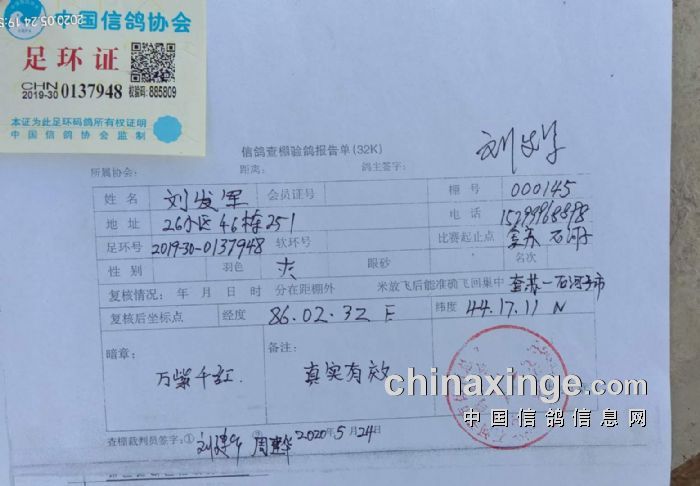 2020.05.24 19:5
中国信鸽协会
足环证
CHN
2019-30 0137948 校验码: 885809
本证为此足环码鸽所有权证明
中国信鸽协会监制
信鸽查棚验鸽报告单(32K)
所属协会: 距离: 鸽主签字:
姓名 刘发军 会员证号 棚号 000145
地址 26小区46栋251 电话
足环号 2019-30-0137948 软环号 比赛起止点 石河子
性别 羽色 灰 眼砂 名次
复核情况: 年 月 日 时 分在距棚外 米放飞后能准确飞回巢中 石河子市
复核后坐标点 经度 86.02.32 E 纬度 44.17.11 N
暗章: 备注:
万紫千红 真实有效
chinaxinge.com
中国信鸽信息网
查棚裁判员签字:① 周建华 2020年5月24日